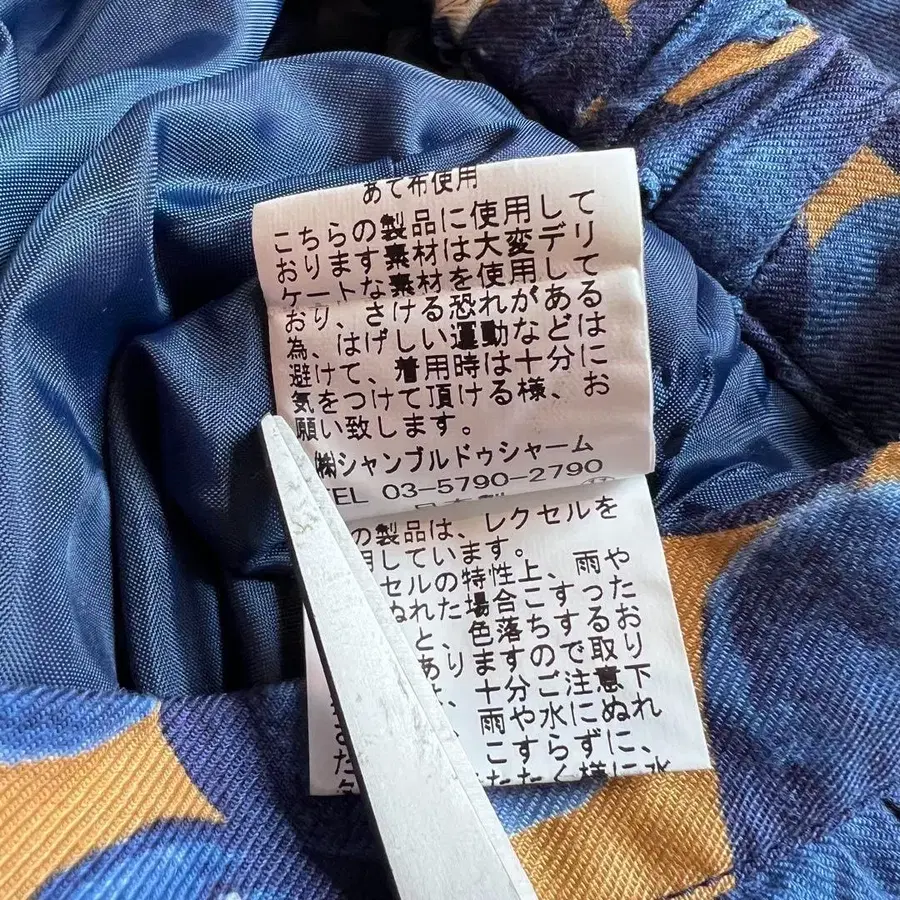 あて布使用
こちらの製品に使用して
おります素材は大変デリ
ケートな素材を使用して
おり、さける恐れがある
為、はげしい運動などは
避けて、着用時は十分に
気をつけて頂ける様、お
願い致します。
㈱シャンブルドゥシャーム
TEL 03-5790-2790
の製品は、レクセルを
用しています。
セルの特性上、雨や
ぬれた場合こすった
と、色落ちするお
ありますので取り
、十分ご注意下
雨や水にぬれ
こすらずに、
たたく様に水